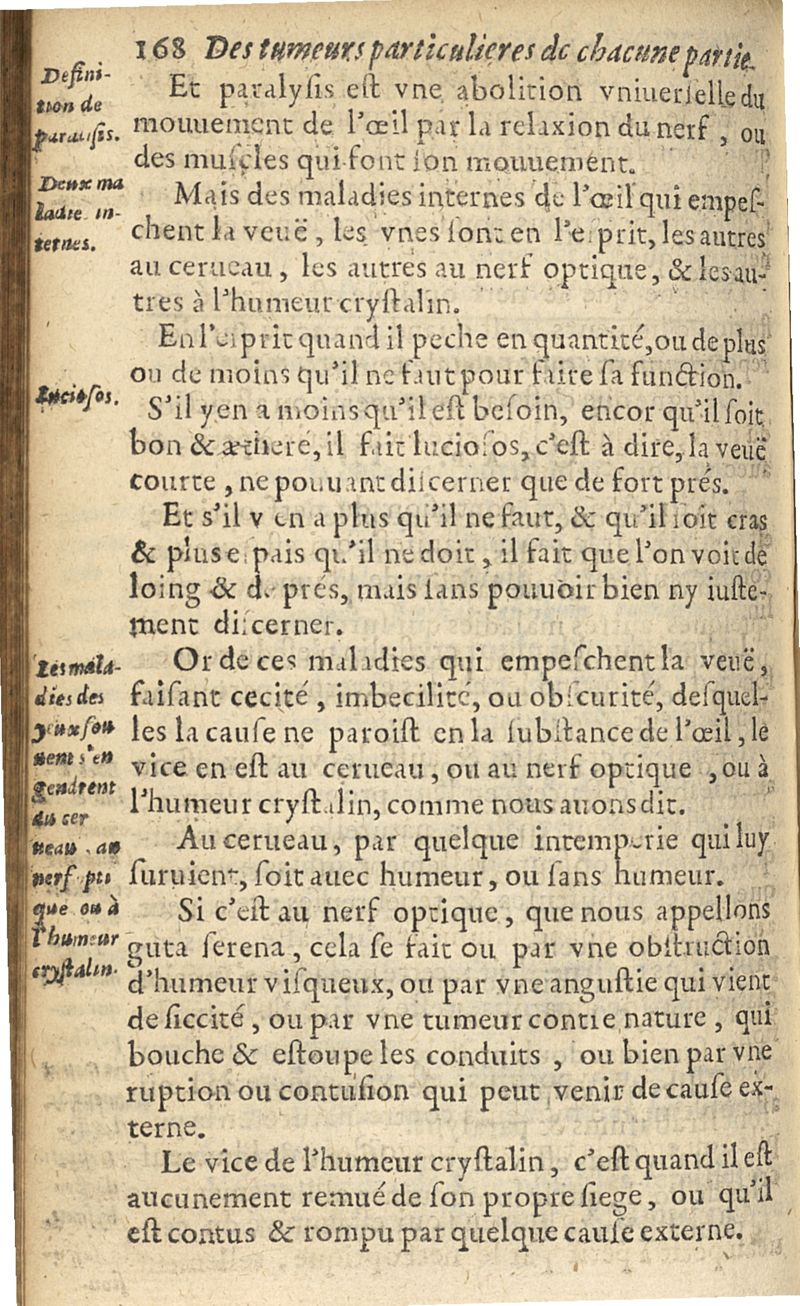 168 Des tumeurs particulieres de chacune partie.
Defini-
tion de
paralisis.
Et paralysis est vne abolition vniuerselle du
mouuement de l'œil par la relaxion du nerf, ou
des muscles qui font son mouuement.
Deux ma
ladie in-
ternes.
Mais des maladies internes de l'œil qui empes-
chent la veuë, les vnes sont en l'esprit, les autres
au cerueau, les autres au nerf optique, & les au-
tres à l'humeur crystalin.
En l'esprit quand il peche en quantité, ou de plus
ou de moins qu'il ne faut pour faire sa function.
Luciosos.
S'il y en a moins qu'il est besoin, encor qu'il soit
bon & ætheré, il fait luciosos, c'est à dire, la veuë
courte, ne pouuant discerner que de fort prés.
Et s'il y en a plus qu'il ne faut, & qu'il soit cras
& plus espais qu'il ne doit, il fait que l'on voit de
loing & de prés, mais sans pouuoir bien ny iuste-
ment discerner.
Les mala-
dies des
yeux son
nent s'en
gendrent
du cer
ueau, au
nerf pti
que ou à
l'humeur
crystalin.
Or de ces maladies qui empeschent la veuë,
faisant cecité, imbecilité, ou obscurité, desquel-
les la cause ne paroist en la substance de l'œil, le
vice en est au cerueau, ou au nerf optique, ou à
l'humeur crystalin, comme nous auons dit.
Au cerueau, par quelque intemperie qui luy
suruient, soit auec humeur, ou sans humeur.
Si c'est au nerf optique, que nous appellons
guta serena, cela se fait ou par vne obstruction
d'humeur visqueux, ou par vne angustie qui vient
de siccité, ou par vne tumeur contre nature, qui
bouche & estoupe les conduits, ou bien par vne
ruption ou contusion qui peut venir de cause ex-
terne.
Le vice de l'humeur crystalin, c'est quand il est
aucunement remué de son propre siege, ou qu'il
est contus & rompu par quelque cause externe.